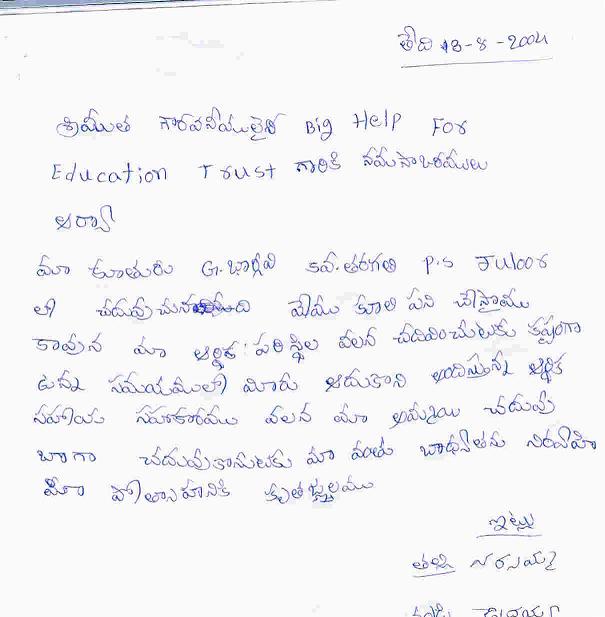 తేది 18-8-2004
శ్రీయుత గౌరవనీయులైన Big Help For
Education Trust గారికి నమస్కారములు
ఆర్యా
మా కూతురు G. భార్గవి 5వ. తరగతి P.S Juloor
లో చదువుచున్నది మేము కూలి పని చేస్తాము
కావున మా ఆర్థిక పరిస్థితుల వలన చదివించుటకు కష్టంగా
ఉన్న సమయములో మీరు ఆదుకొని అందిస్తున్న ఆర్థిక
సహాయ సహకారము వలన మా అమ్మాయి చదువు
బాగా చదువుకొనుటకు మా వంతు బాధ్యతను నిర్వహి
మీ ప్రోత్సాహనికి కృతజ్ఞులము
ఇట్లు
తల్లి నర్సమ్మ
తండ్రి